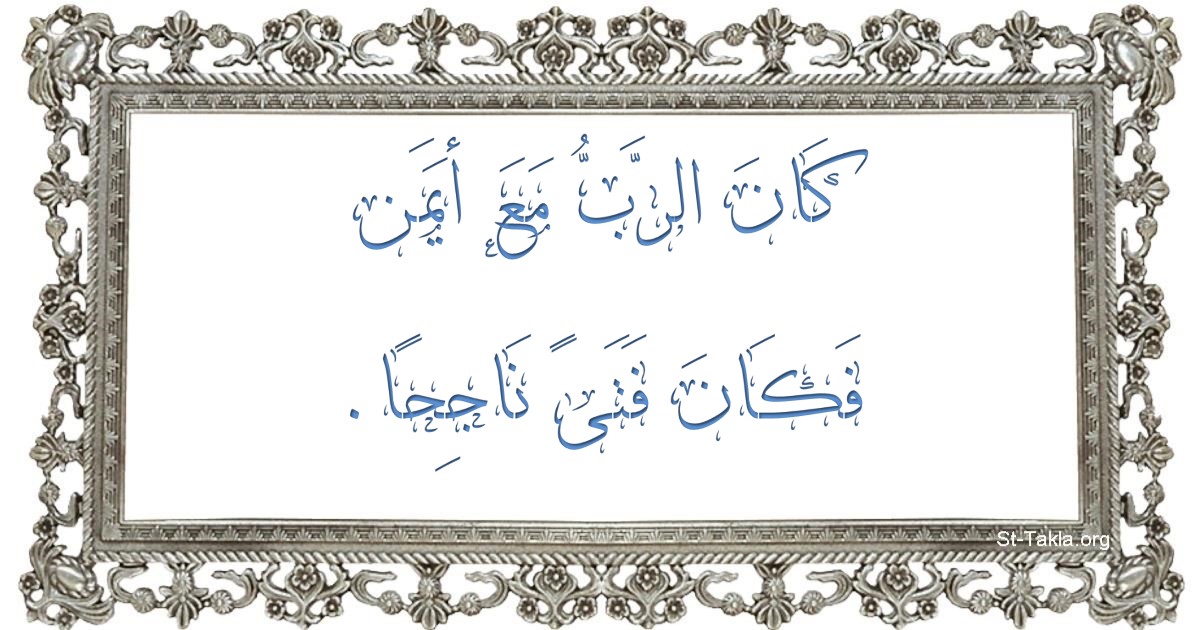 كَانَ الرَّبُّ مَعَ أيَمَن
فَكَانَ فَتَىً نَاجِحًا .
St-Takla.org